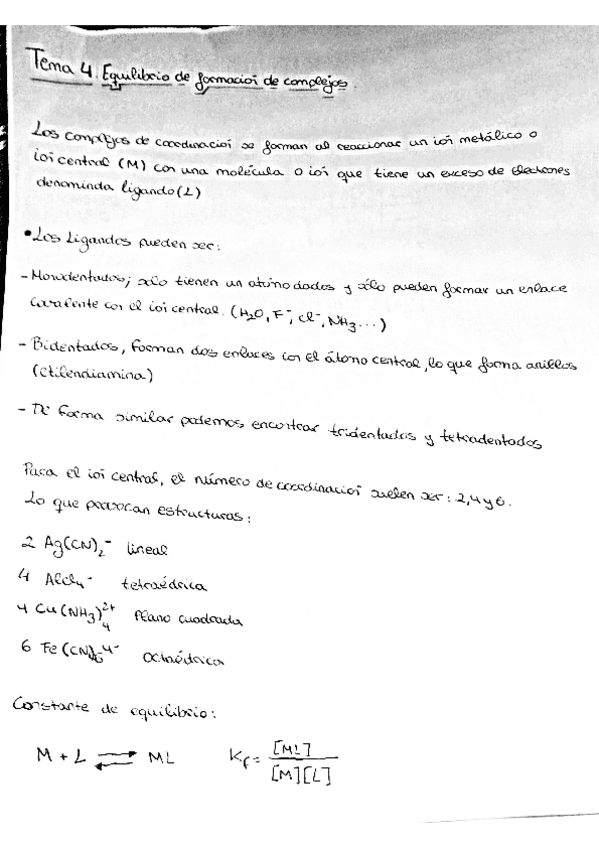 Tema 4. Equilibrio de formación de complejos.
Los complejos de coordinación se forman al reaccionar un ión metálico o
ión central (M) con una molécula o ión que tiene un exceso de electrones
denominda ligando (L)
• Los Ligandos pueden ser:
- Monodentados; sólo tienen un átomo dados y sólo pueden formar un enlace
covalente con el ión central. (H₂O, F⁻, Cl⁻, NH₃...)
- Bidentados, forman dos enlaces con el átomo central, lo que forma anillos
(etilendiamina)
- De forma similar podemos encontrar tridentados y tetradentados
Para el ión central, el número de coordinación suelen ser: 2, 4 y 6.
Lo que provocan estructuras:
2 Ag(CN)₂⁻ lineal
4 AlCl₄⁻ tetraédrica
4 Cu(NH₃)₄²⁺ Plano cuadrada
6 Fe(CN)₆⁴⁻ octaédrica
Constante de equilibrio:
M + L ⇌ ML Kf = [ML] / [M][L]